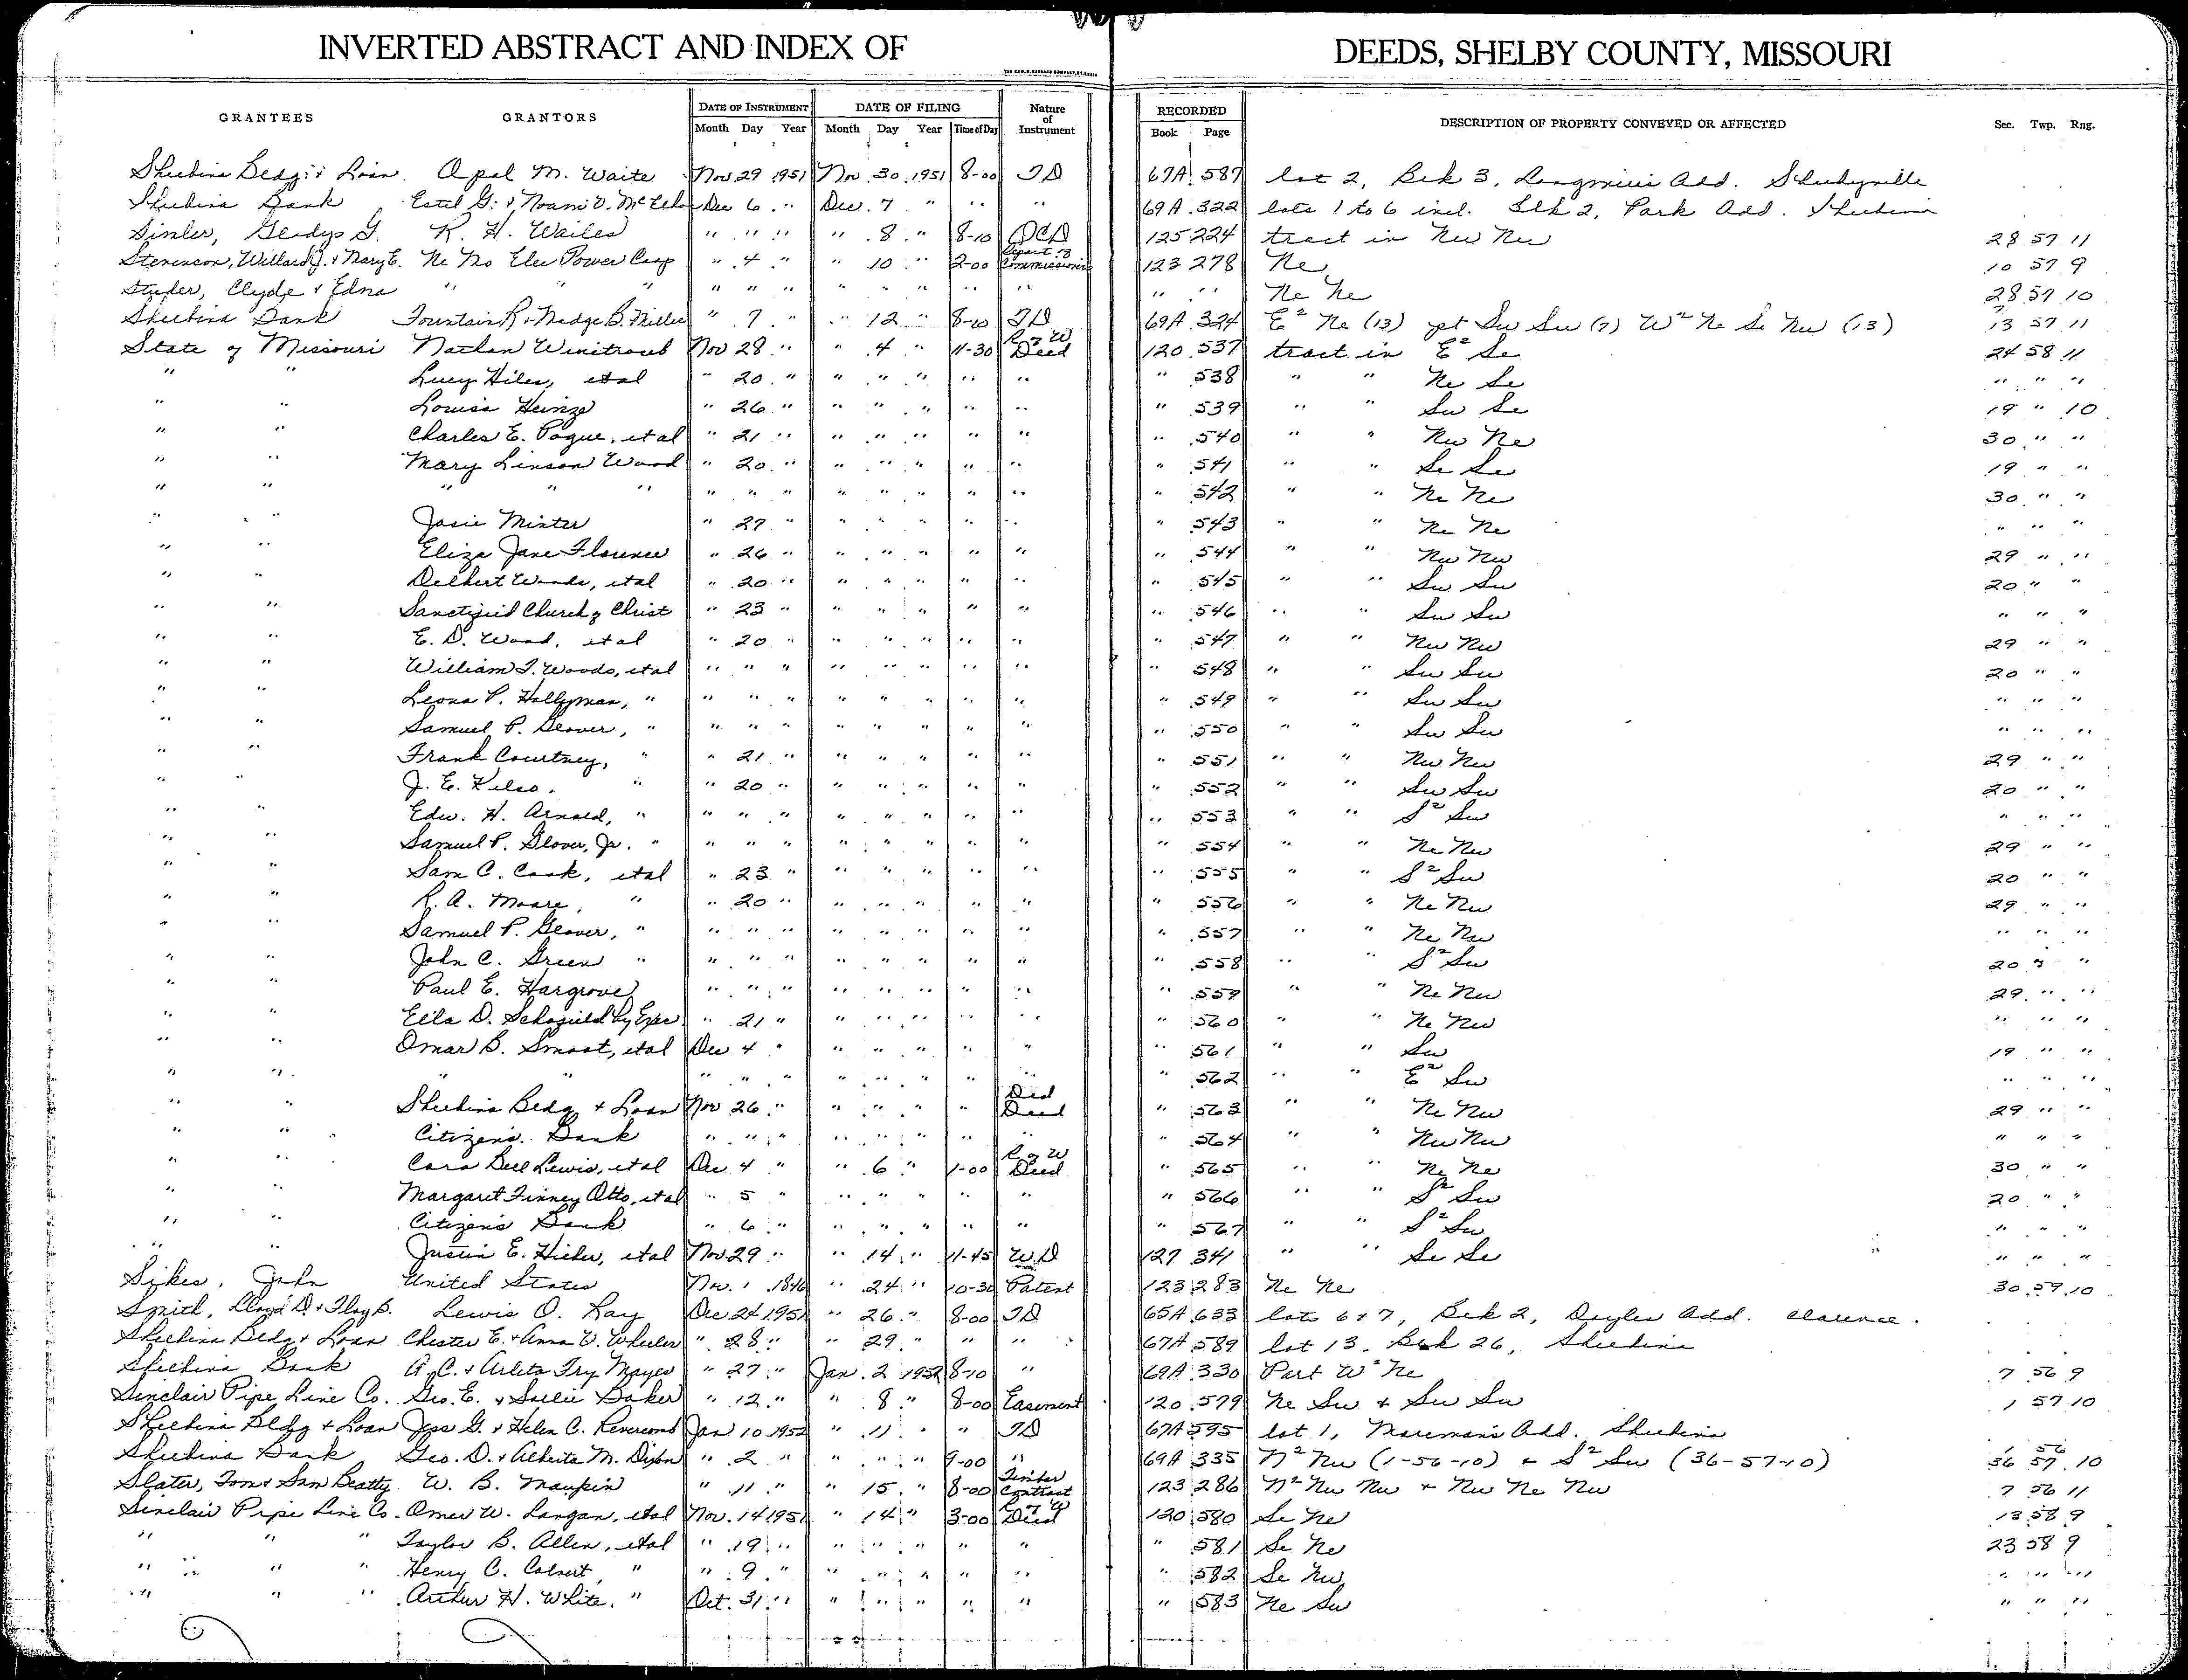 INVERTED ABSTRACT AND INDEX OF DEEDS, SHELBY COUNTY, MISSOURI
GRANTEES GRANTORS DATE OF INSTRUMENT DATE OF FILING Nature of Instrument RECORDED DESCRIPTION OF PROPERTY CONVEYED OR AFFECTED Sec. Twp. Rng.
Month Day Year Month Day Year Time of Day Book Page
Shelbina Bldg & Loan Opal M. Waite Nov 29 1951 Nov. 30 1951 8-00 TD 67A 587 lot 2, Blk 3, Add. Shelbyville
Shelbina Bank Estel G. & Noami V. Dec 6 " Dec. 7 " " " 69A 322 lots 1 to 6 incl. Blk 2, Park Add. Shelbina
Simler, Gladys G. R. H. Wailes " " " " 8 " 8-10 QCD 125 224 tract in Nw Nw 28 57 11
Stevenson, Willard J. & Mary E. Ne Mo Elec Power Coop " 4 " " 10 " 2-00 Report of Commissioners 123 278 Ne 10 57 9
Studer, Clyde & Edna " " " " " " " " " " " " " Ne Ne 28 57 10
Shelbina Bank Fountain R & Madge B. Miller " 7 " " 12 " 8-10 TD 69A 324 E² Ne (13) pt Sw Sw (7) W² Ne Se Nw (13) 7 13 57 11
State of Missouri Nathan Winitroub Nov 28 " " 4 " 11-30 R of W Deed 120 537 tract in E² Se 24 58 11
" " Lucy Hiles, etal " 20 " " " " " " " 538 " " Ne Se " " "
" " Louisa Heinze " 26 " " " " " " " 539 " " Sw Se 19 " 10
" " Charles E. Pogue, etal " 21 " " " " " " " 540 " " Nw Ne 30 " "
" " Mary Linson Wood " 20 " " " " " " " 541 " " Se Se 19 " "
" " " " " " " " " " " " " " 542 " " Ne Ne 30 " "
" " Josie Minter " 27 " " " " " " " 543 " " Ne Ne " " "
" " Eliza Jane Florence " 26 " " " " " " " 544 " " Nw Nw 29 " "
" " Delbert Woods, etal " 20 " " " " " " " 545 " " Sw Sw 20 " "
" " Sanctified Church of Christ " 23 " " " " " " " 546 " " Sw Sw " " "
" " E. D. Wood, etal " 20 " " " " " " " 547 " " Nw Nw 29 " "
" " William T. Woods, etal " " " " " " " " " 548 " " Sw Sw 20 " "
" " Leona P. Hollyman, " " " " " " " " " " 549 " " Sw Sw " " "
" " Samuel P. Glover, " " " " " " " " " " 550 " " Sw Sw " " "
" " Frank Courtney, " " 21 " " " " " " " 551 " " Nw Nw 29 " "
" " J. E. Kelso, " " 20 " " " " " " " 552 " " Sw Sw 20 " "
" " Edw. H. Arnold, " " " " " " " " " " 553 " " S² Sw " " "
" " Samuel P. Glover, Jr. " " " " " " " " " " 554 " " Ne Nw 29 " "
" " Sam C. Cook, etal " 23 " " " " " " " 555 " " S² Sw 20 " "
" " R. A. Moore, " " 20 " " " " " " " 556 " " Ne Nw 29 " "
" " Samuel P. Glover, " " " " " " " " " " 557 " " Ne Nw " " "
" " John C. Green " " " " " " " " " " 558 " " S² Sw 20 " "
" " Paul E. Hargrove " " " " " " " " " 559 " " Ne Nw 29 " "
" " Ella D. Schofield by Exec " 21 " " " " " " " 560 " " Ne Nw " " "
" " Omar B. Smoot, etal Dec 4 " " " " " " " 561 " " Sw 19 " "
" " " " " " " " " " " " " 562 " " E² Sw " " "
" " Shelbina Bldg & Loan Nov 26 " " " " " Ded Deed " 563 " " Ne Nw 29 " "
" " Citizens Bank " " " " " " " " " 564 " " Nw Nw " " "
" " Cora Dell Lewis, etal Dec 4 " " 6 " 1-00 R of W Deed " 565 " " Ne Ne 30 " "
" " Margaret Finney Otto, etal " 5 " " " " " " " 566 " " S² Sw 20 " "
" " Citizens Bank " 6 " " " " " " " 567 " " S² Sw " " "
" " Justin E. etal Nov. 29 " " 14 " 11-45 W.D 127 341 " " Se Se " " "
Sikes, John United States Nov. 1 1846 " 24 " 10-30 Patent 123 283 Ne Ne 30 59 10
Smith, Lloyd D. & Floy B. Lewis O. Ray Dec 24 1951 " 26 " 8-00 TD 65A 633 lots 6 & 7, Blk 2, Add. Clarence.
Shelbina Bldg & Loan Chester E. & Anna V. Wheeler " 28 " " 29 " " " 67A 589 lot 13, Blk 26, Shelbina
Shelbina Bank A. C. & Arleta Fry Mayes " 27 " Jan. 2 1952 8-10 " 69A 330 Part W² Ne 7 56 9
Sinclair Pipe Line Co. Geo. E. & Sallie Baker " 12 " " 8 " 8-00 Easement 120 579 Ne Sw & Sw Sw 1 57 10
Shelbina Bldg & Loan Jess G. & Helen C. Revercomb Jan 10 1952 " 11 " " TD 67A 595 lot 1, Add. Shelbina
Shelbina Bank Geo. D. & Alberta M. Dixon " 2 " " " " 9-00 " 69A 335 N² Nw (1-56-10) & S² Sw (36-57-10) 1 56 36 57 10
Slater, Tom & Sam Beatty W. B. Maupin " 11 " " 15 " 8-00 Timber Contract 123 286 N² Nw Nw & Nw Ne Nw 7 56 11
Sinclair Pipe Line Co. Omer W. Langan, etal Nov. 14 1951 " 14 " 3-00 R of W Deed 120 580 Se Ne 13 58 9
" " " Taylor B. Allen, etal " 19 " " " " " " " 581 Se Ne 23 58 9
" " " Henry C. Calvert, " " 9 " " " " " " " 582 Se Nw " " "
" " " Arthur H. White, " Oct. 31 " " " " " " " 583 Ne Sw " " "